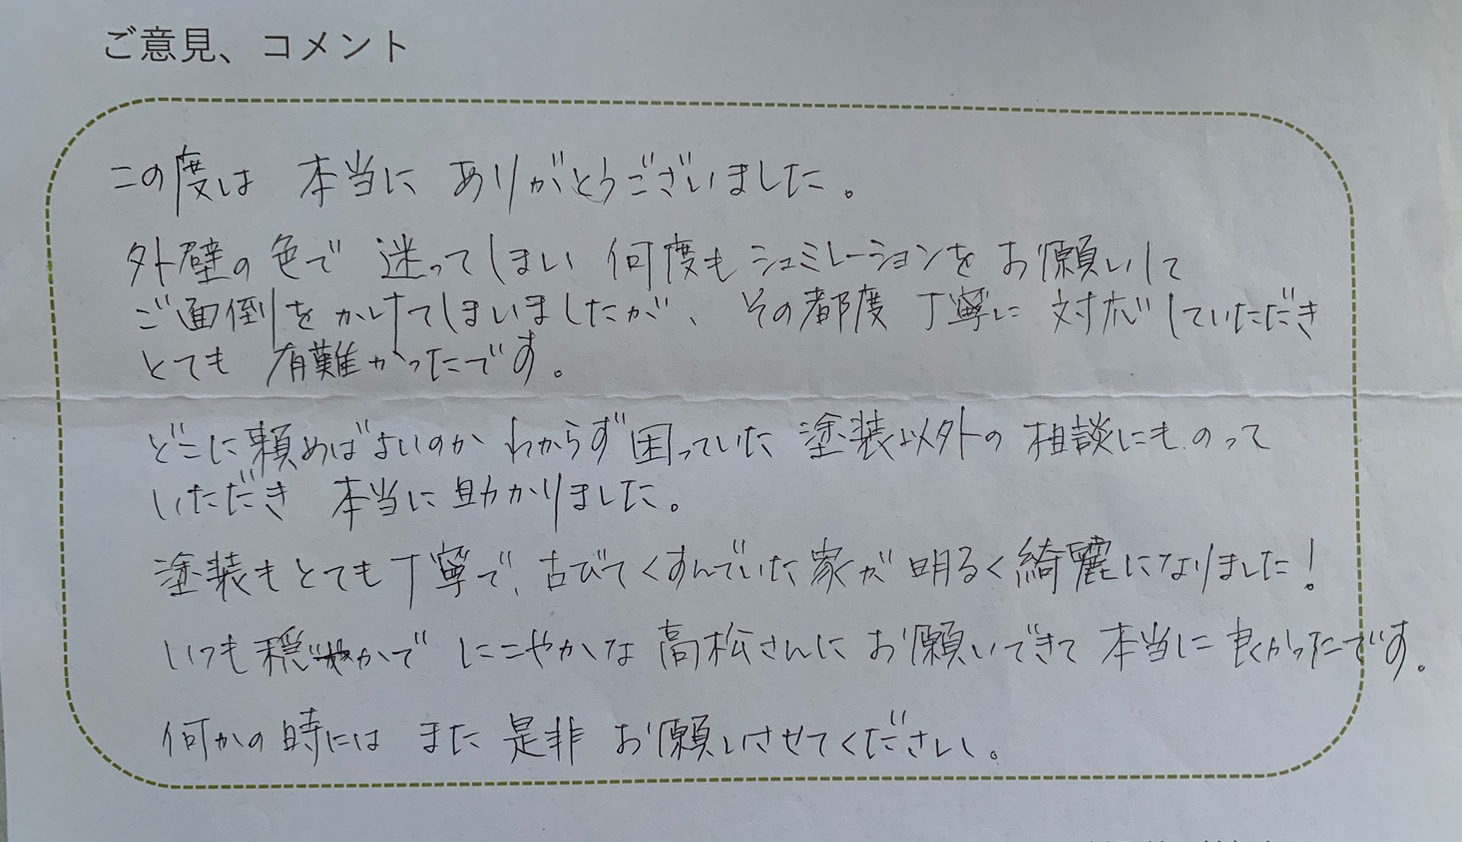 ご意見、コメント
この度は 本当に ありがとうございました。
外壁の色で 迷ってしまい 何度もシュミレーションをお願いして
ご面倒をかけてしまいましたが、その都度 丁寧に 対応していただき
とても 有難かったです。
どこに頼めばよいのか わからず困っていた 塗装以外の 相談にものって
いただき 本当に助かりました。
塗装もとても丁寧で、古びてくすんでいた家が明るく綺麗になりました!
いつも穏やかで にこやかな 高松さんに お願いできて 本当に良かったです。
何かの時には また 是非 お願いさせてください。